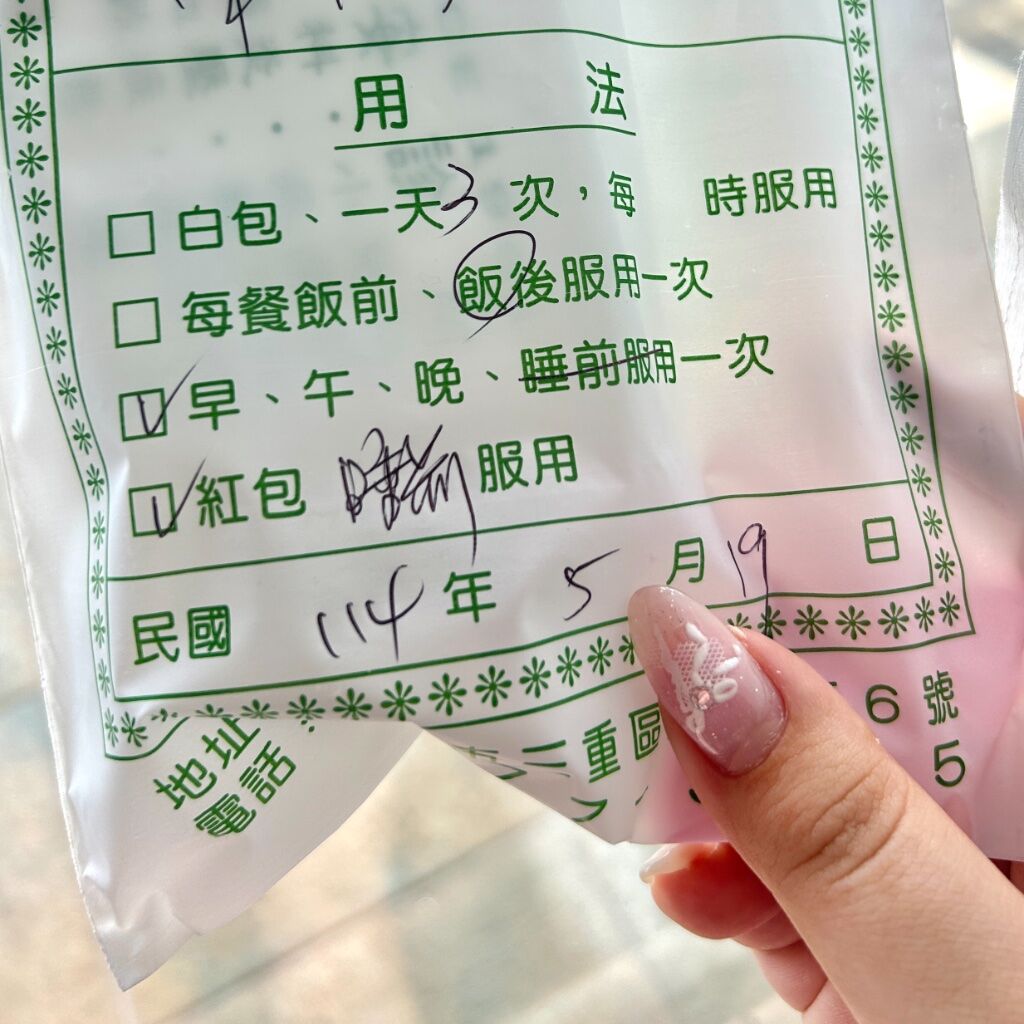 用 法
□白包、一天3次，每 時服用
□每餐飯前、飯後服用一次
☑早、午、晚、睡前服用一次
☑紅包 睡前 服用
民國 114年 5月19日
地址:
電話:
三重區 6號
5